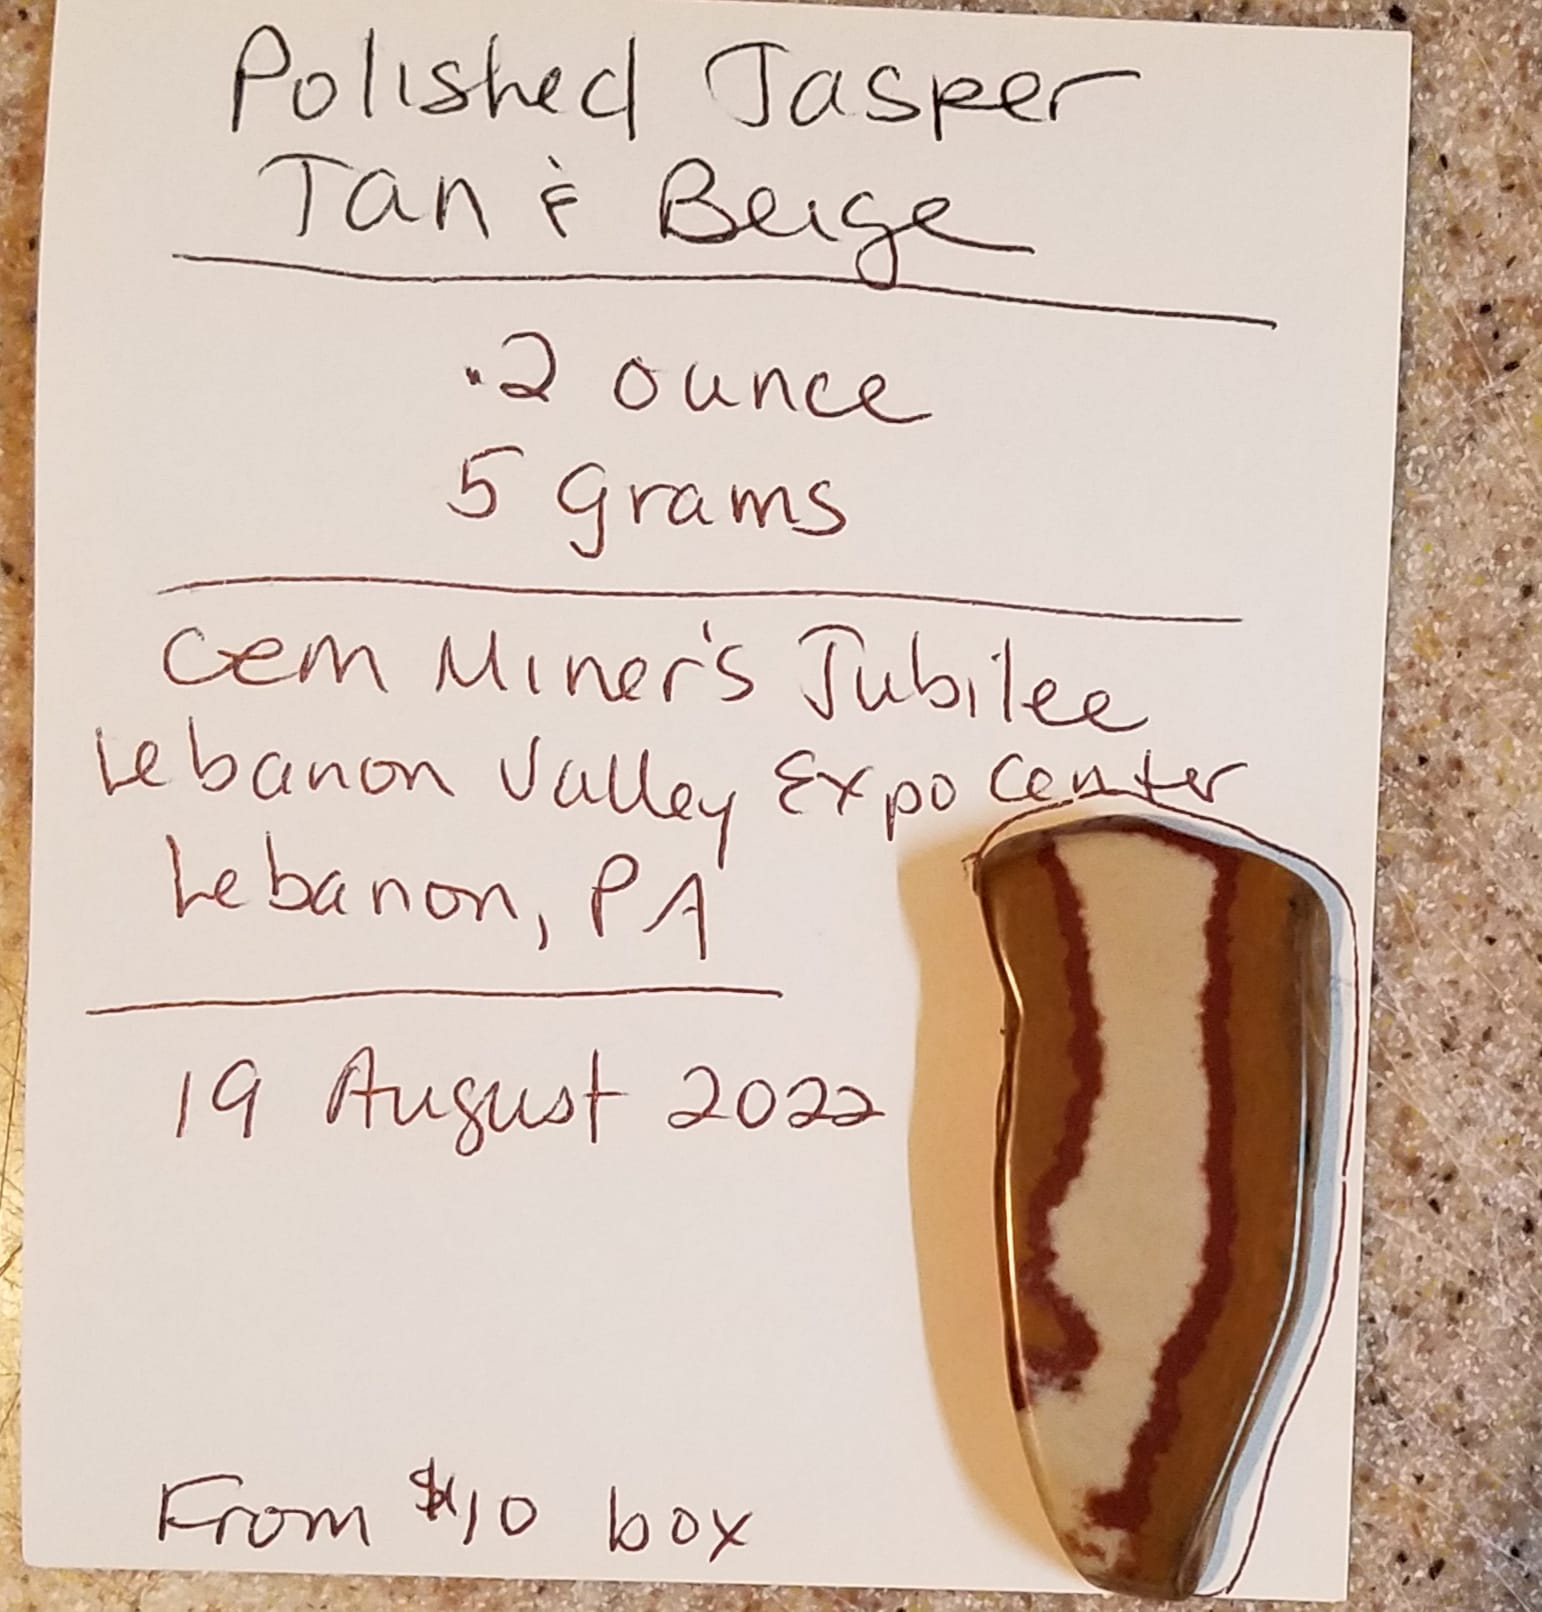 Polished Jasper
Tan & Beige
.2 ounce
5 grams
Gem Miner's Jubilee
Lebanon Valley Expo Center
Lebanon, PA
19 August 2022
From $10 box